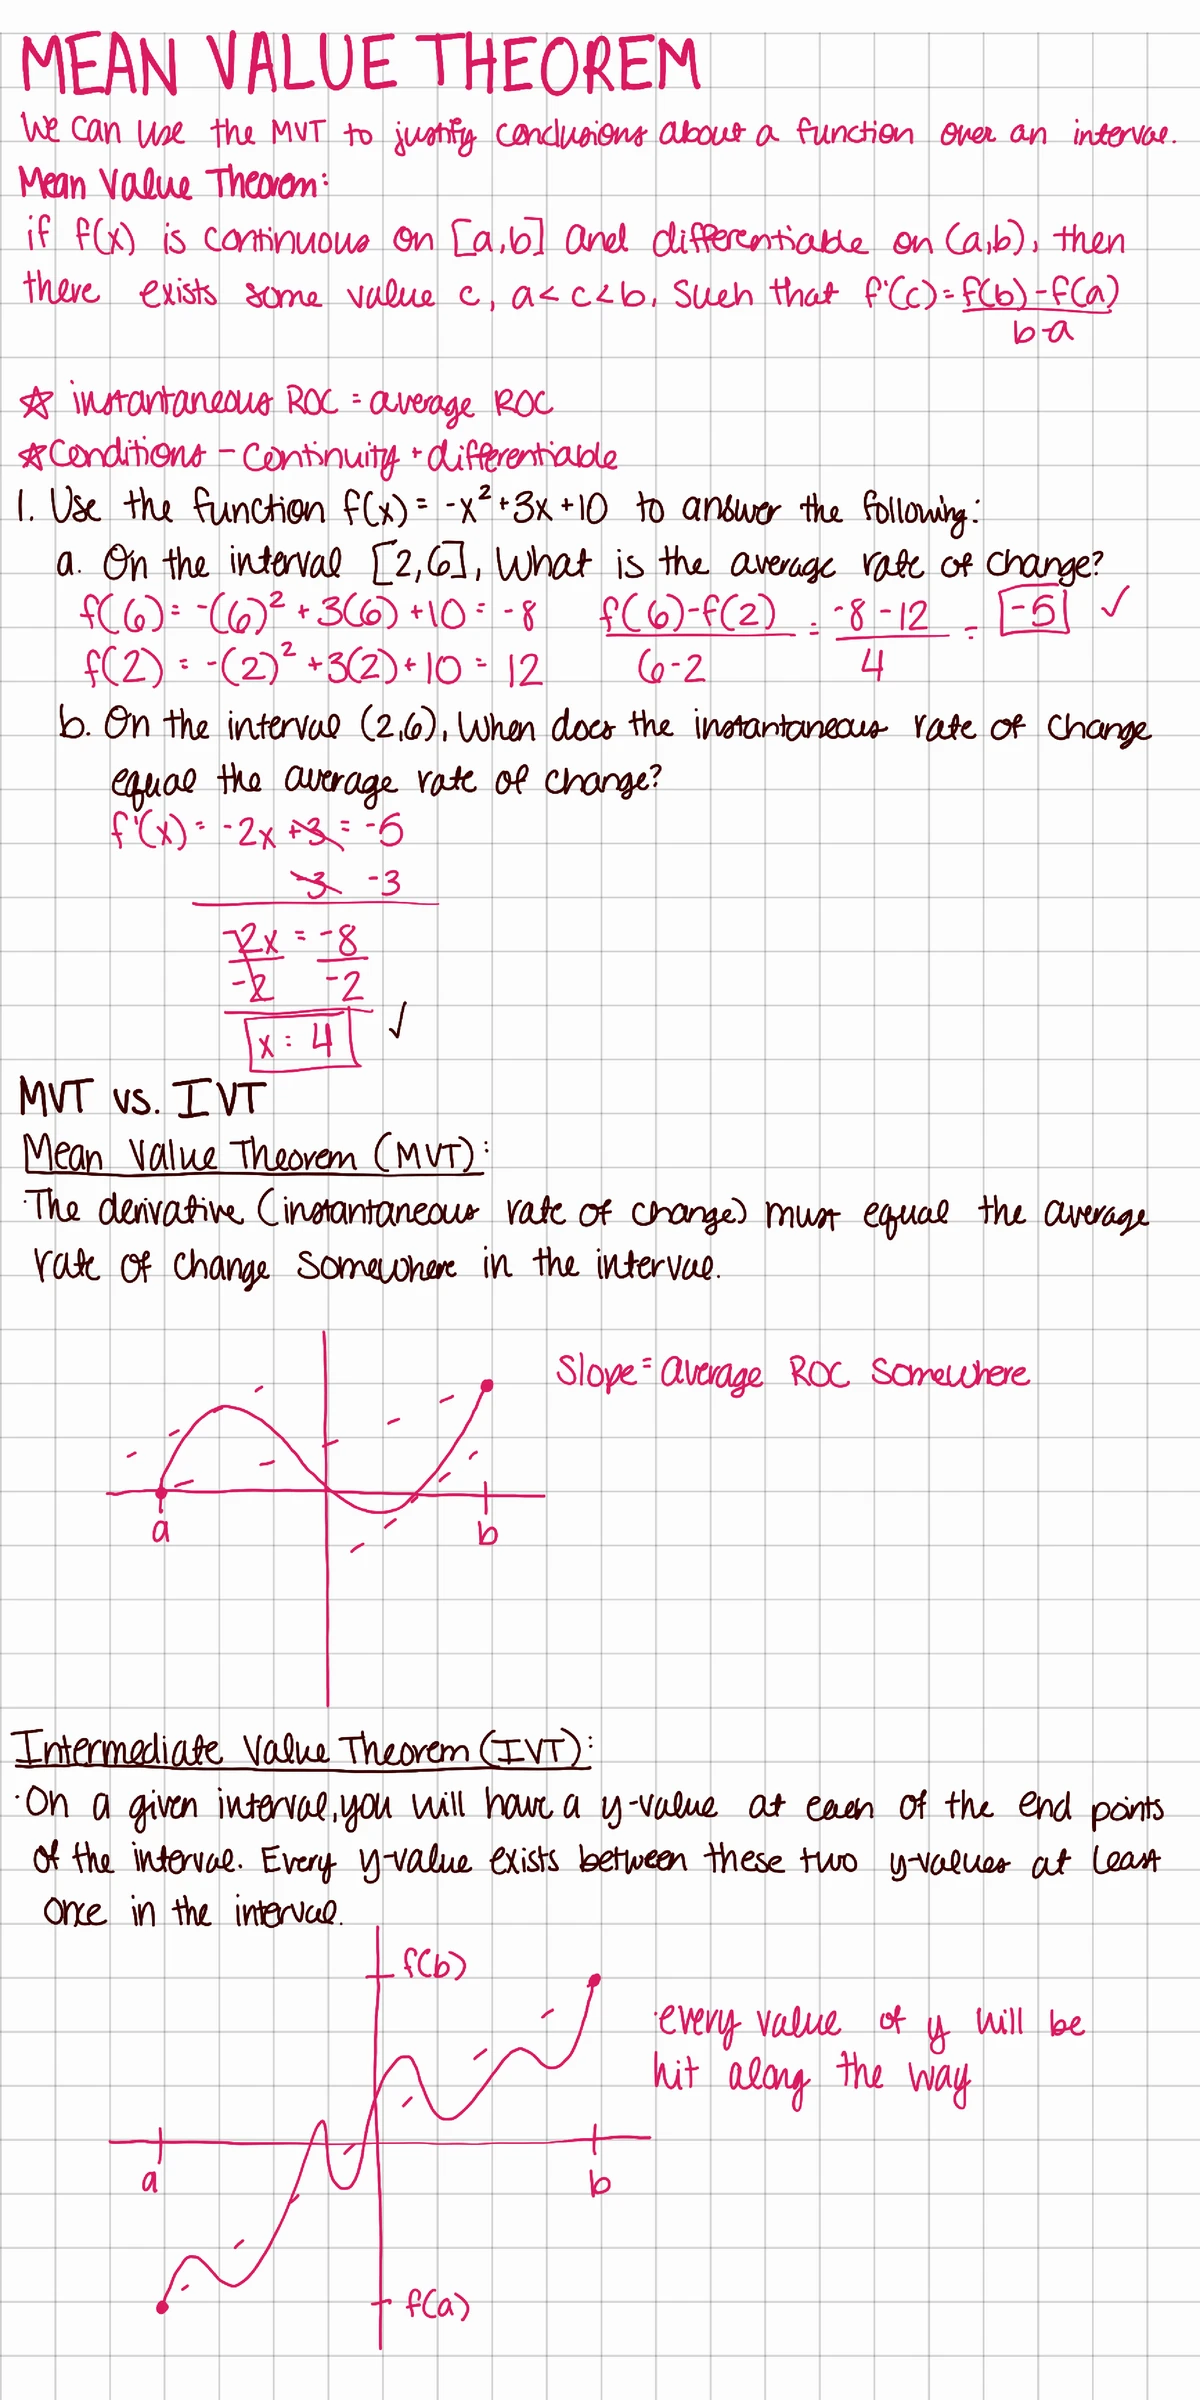 MEAN VALUE THEOREM
We can use the MVT to justify conclusions about a function over an interval.
Mean Value Theorem:
if f(x) is continuous on [a,b] and differentiable on (a,b), then
there exists some value c, a<c<b, such that f'(c)=f(b)-f(a)
b-a
☆ instantaneous ROC = average ROC
☆ Conditions - continuity + differentiable
1. Use the function f(x) = -x²+3x+10 to answer the following:
a. On the interval [2,6], what is the average rate of change?
f(6) = -(6)²+3(6)+10 = -8 f(6)-f(2) = -8-12 = -5 ✓
f(2) = -(2)²+3(2)+10 = 12 6-2 4
b. On the interval (2,6), when does the instantaneous rate of change
equal the average rate of change?
f'(x) = -2x +3 = -5
-3 -3
-2x = -8
-2 -2
x = 4 ✓
MVT vs. IVT
Mean Value Theorem (MVT):
·The derivative (instantaneous rate of change) must equal the average
rate of change somewhere in the interval.
Slope = average ROC somewhere
a b
Intermediate Value Theorem (IVT):
·On a given interval, you will have a y-value at each of the end points
of the interval. Every y-value exists between these two y-values at least
once in the interval.
f(b)
·every value of y will be
hit along the way
a b
f(a)